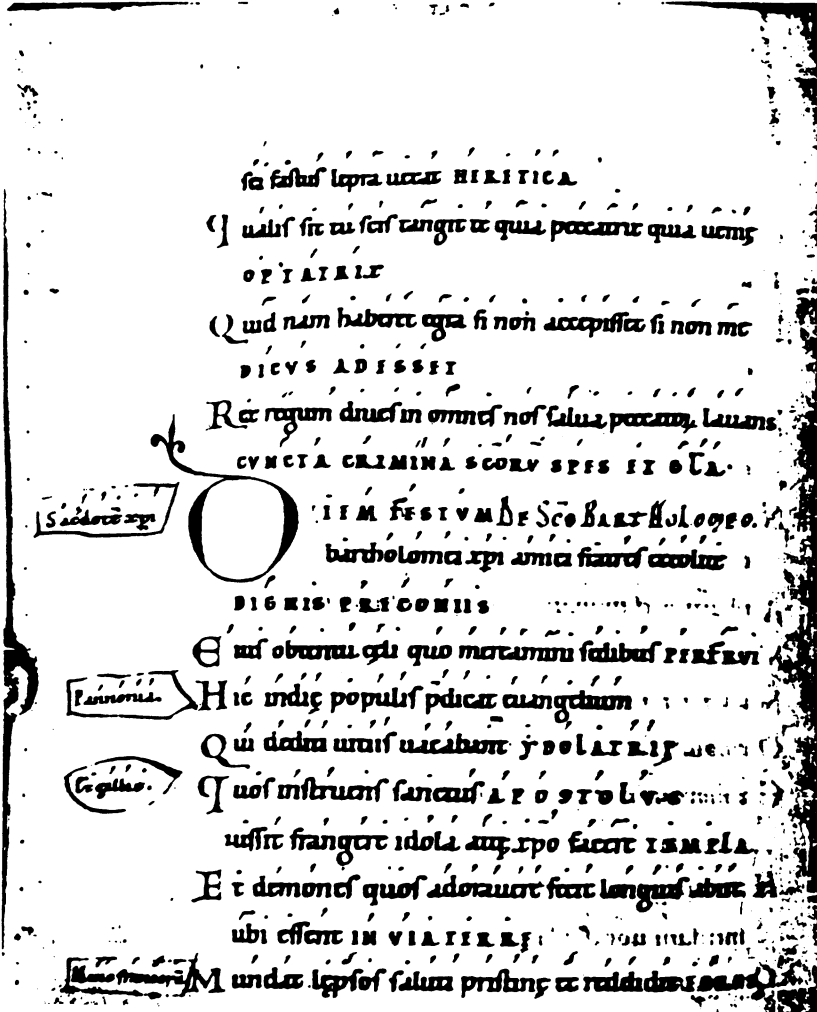 sc̄i fastus lepra uetat HERETICA
Qualis sit tu scis tangit te quia peccatrix quia uenię
OPTATRIX
Quid nam haberet egra si non accepisset si non me
DICVS ADESSET
Rex regum diues in omnes nos salua peccatorꝝ lauans
CVNCTA CRIMINA SCORV SPES ET GLA.
DIEM FESTVM DE SCO BARTHOLOMEO.
Sacdote xpi
bartholomei xpi amici fratres excolite
DIGNIS PRECONIIS
Eius obtentu cęli quo mereamini sedibus PERFRVI
Pannonia.
Hic indię populis p̄dicat euangelium
Qui dediti uitiis uacabant YDOLATRIE
Quos instruens sanctus APOSTOLVS
iussit frangere idola atq. xpo facere TEMPLA.
Et demones quos adorauere fecit longius abire
ubi essent IN VIA TERRE
Mundat lępsos saluti pristinę et reddidit